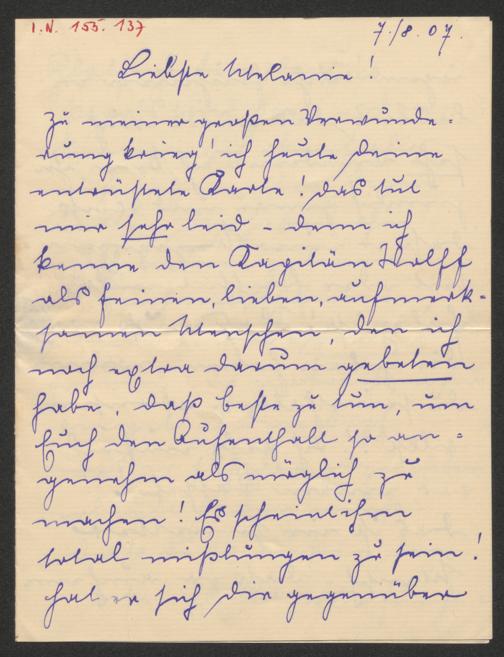 I.N. 155.137
7./8.07.
Liebste Melanie!
Zu meiner großen Verwunde-
rung krieg' ich heute Deine
entrüstete Karte! Das tut
mir sehr leid - denn ich
kenne den Kapitän Wolff
als feinen, lieben, aufmerk-
samen Menschen, den ich
noch extra darum gebeten
habe, daß beste zu tun, um
Euch den Aufenthalt so an-
genehm als möglich zu
machen! Es scheint ihm
total mißlungen zu sein!
hat er sich Dir gegenüber